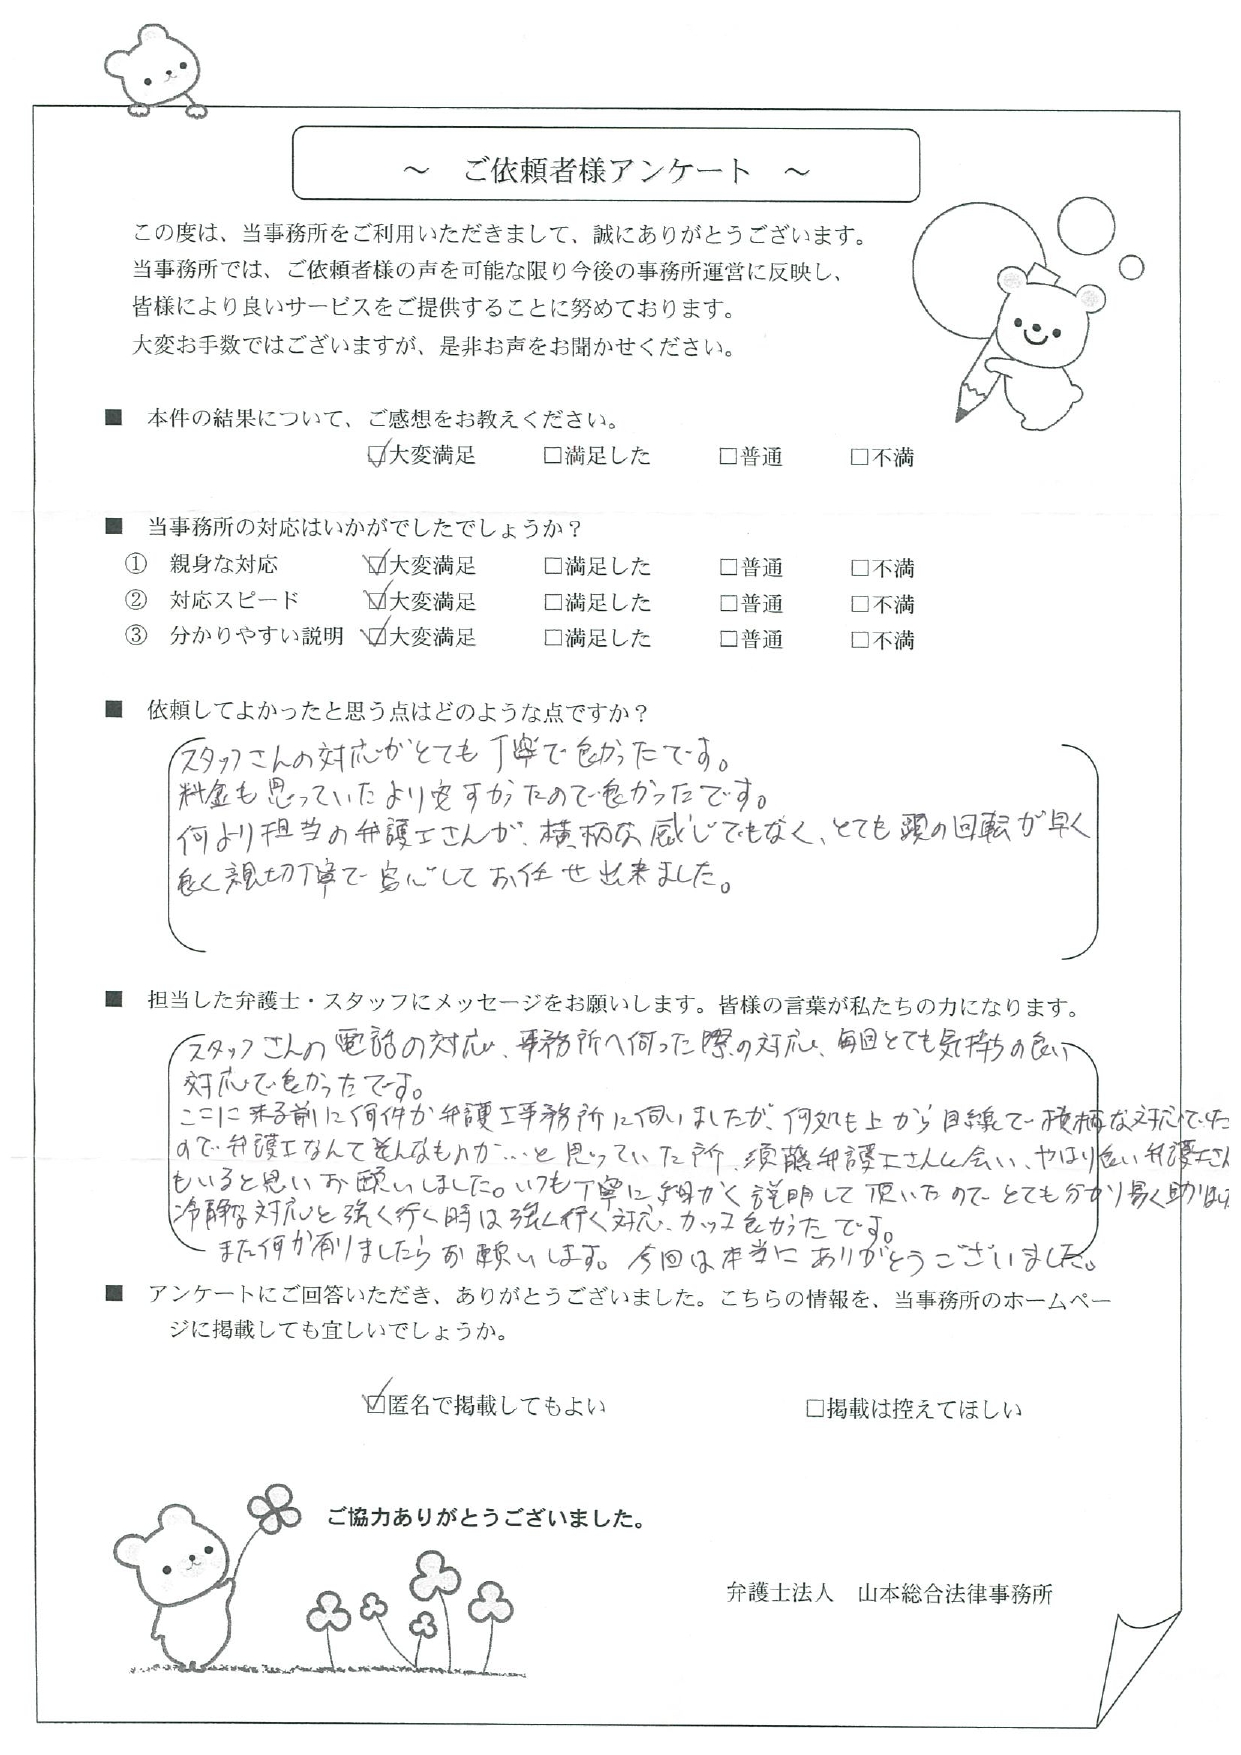 ～　ご依頼者様アンケート　～
この度は、当事務所をご利用いただきまして、誠にありがとうございます。
当事務所では、ご依頼者様の声を可能な限り今後の事務所運営に反映し、
皆様により良いサービスをご提供することに努めております。
大変お手数ではございますが、是非お声をお聞かせください。
■　本件の結果について、ご感想をお教えください。
☑大変満足　□満足した　□普通　□不満
■　当事務所の対応はいかがでしたでしょうか？
①　親身な対応　☑大変満足　□満足した　□普通　□不満
②　対応スピード　☑大変満足　□満足した　□普通　□不満
③　分かりやすい説明　☑大変満足　□満足した　□普通　□不満
■　依頼してよかったと思う点はどのような点ですか？
スタッフさんの対応がとても丁寧で良かったです。
料金も思っていたより安すかったので良かったです。
何より担当の弁護士さんが、横柄な感じでもなく、とても頭の回転が早く
良く親切丁寧で安心してお任せ出来ました。
■　担当した弁護士・スタッフにメッセージをお願いします。皆様の言葉が私たちの力になります。
スタッフさんの電話の対応、事務所へ伺った際の対応、毎回とても気持ちの良い
対応で良かったです。
ここに来る前に何件か弁護士事務所に伺いましたが、何処も上から目線で横柄な対応でした
ので弁護士なんてそんなものか…と思っていた所、須藤弁護士さんと会い、やはり良い弁護士さん
もいると思いお願いしました。いつも丁寧に細かく説明して頂いたのでとても分かり易く助り
冷静な対応と強く行く時は強く行く対応、カッコ良かったです。
また何か有りましたらお願いします。今回は本当にありがとうございました。
■　アンケートにご回答いただき、ありがとうございました。こちらの情報を、当事務所のホームペー
ジに掲載しても宜しいでしょうか。
☑匿名で掲載してもよい　□掲載は控えてほしい
ご協力ありがとうございました。
弁護士法人　山本総合法律事務所